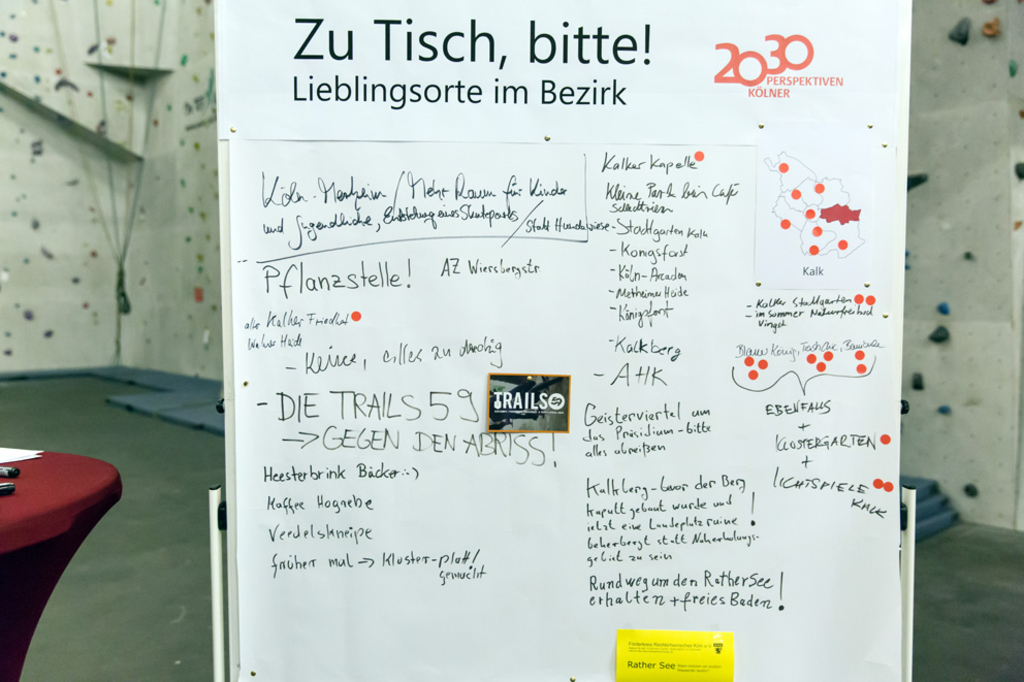 Zu Tisch, bitte!
Lieblingsorte im Bezirk
2030
PERSPEKTIVEN
KÖLNER
Köln-Merheim / Mehr Raum für Kinder
und Jugendliche, Entstehung eines Skateparks / Statt Hundewiese
Pflanzstelle! AZ Wiersbergstr
alter Kalker Friedhof
Wahner Heide
- Keine, alles zu dreckig
- DIE TRAILS 59
→ GEGEN DEN ABRISS!
TRAILS
Heesterbrink Bäcker :-)
Kaffee
Veedelskneipe
früher mal → Kloster - platt/
gemacht
Kalker Kapelle
Kleine Park beim Café
- Stadtgarten Kalk
- Königsforst
- Köln-Arcaden
- Merheimer Heide
- Königsforst
- Kalkberg
- AHK
Geisterviertel um
das Präsidium - bitte
alles abreißen
Kalkberg - bevor der Berg
kaputt gebaut wurde und
jetzt eine Landeplatzruine
beherbergt statt Naherholungs-
gebiet zu sein!
Rundweg um den Rather See
erhalten + freies Baden!
Kalk
- Kalker Stadtgarten
- im Sommer Naturfreibad
Vingst
Blauer König, Trash Chic,
EBENFALLS
+
KLOSTERGARTEN
+
LICHTSPIELE
KALK
Rather See